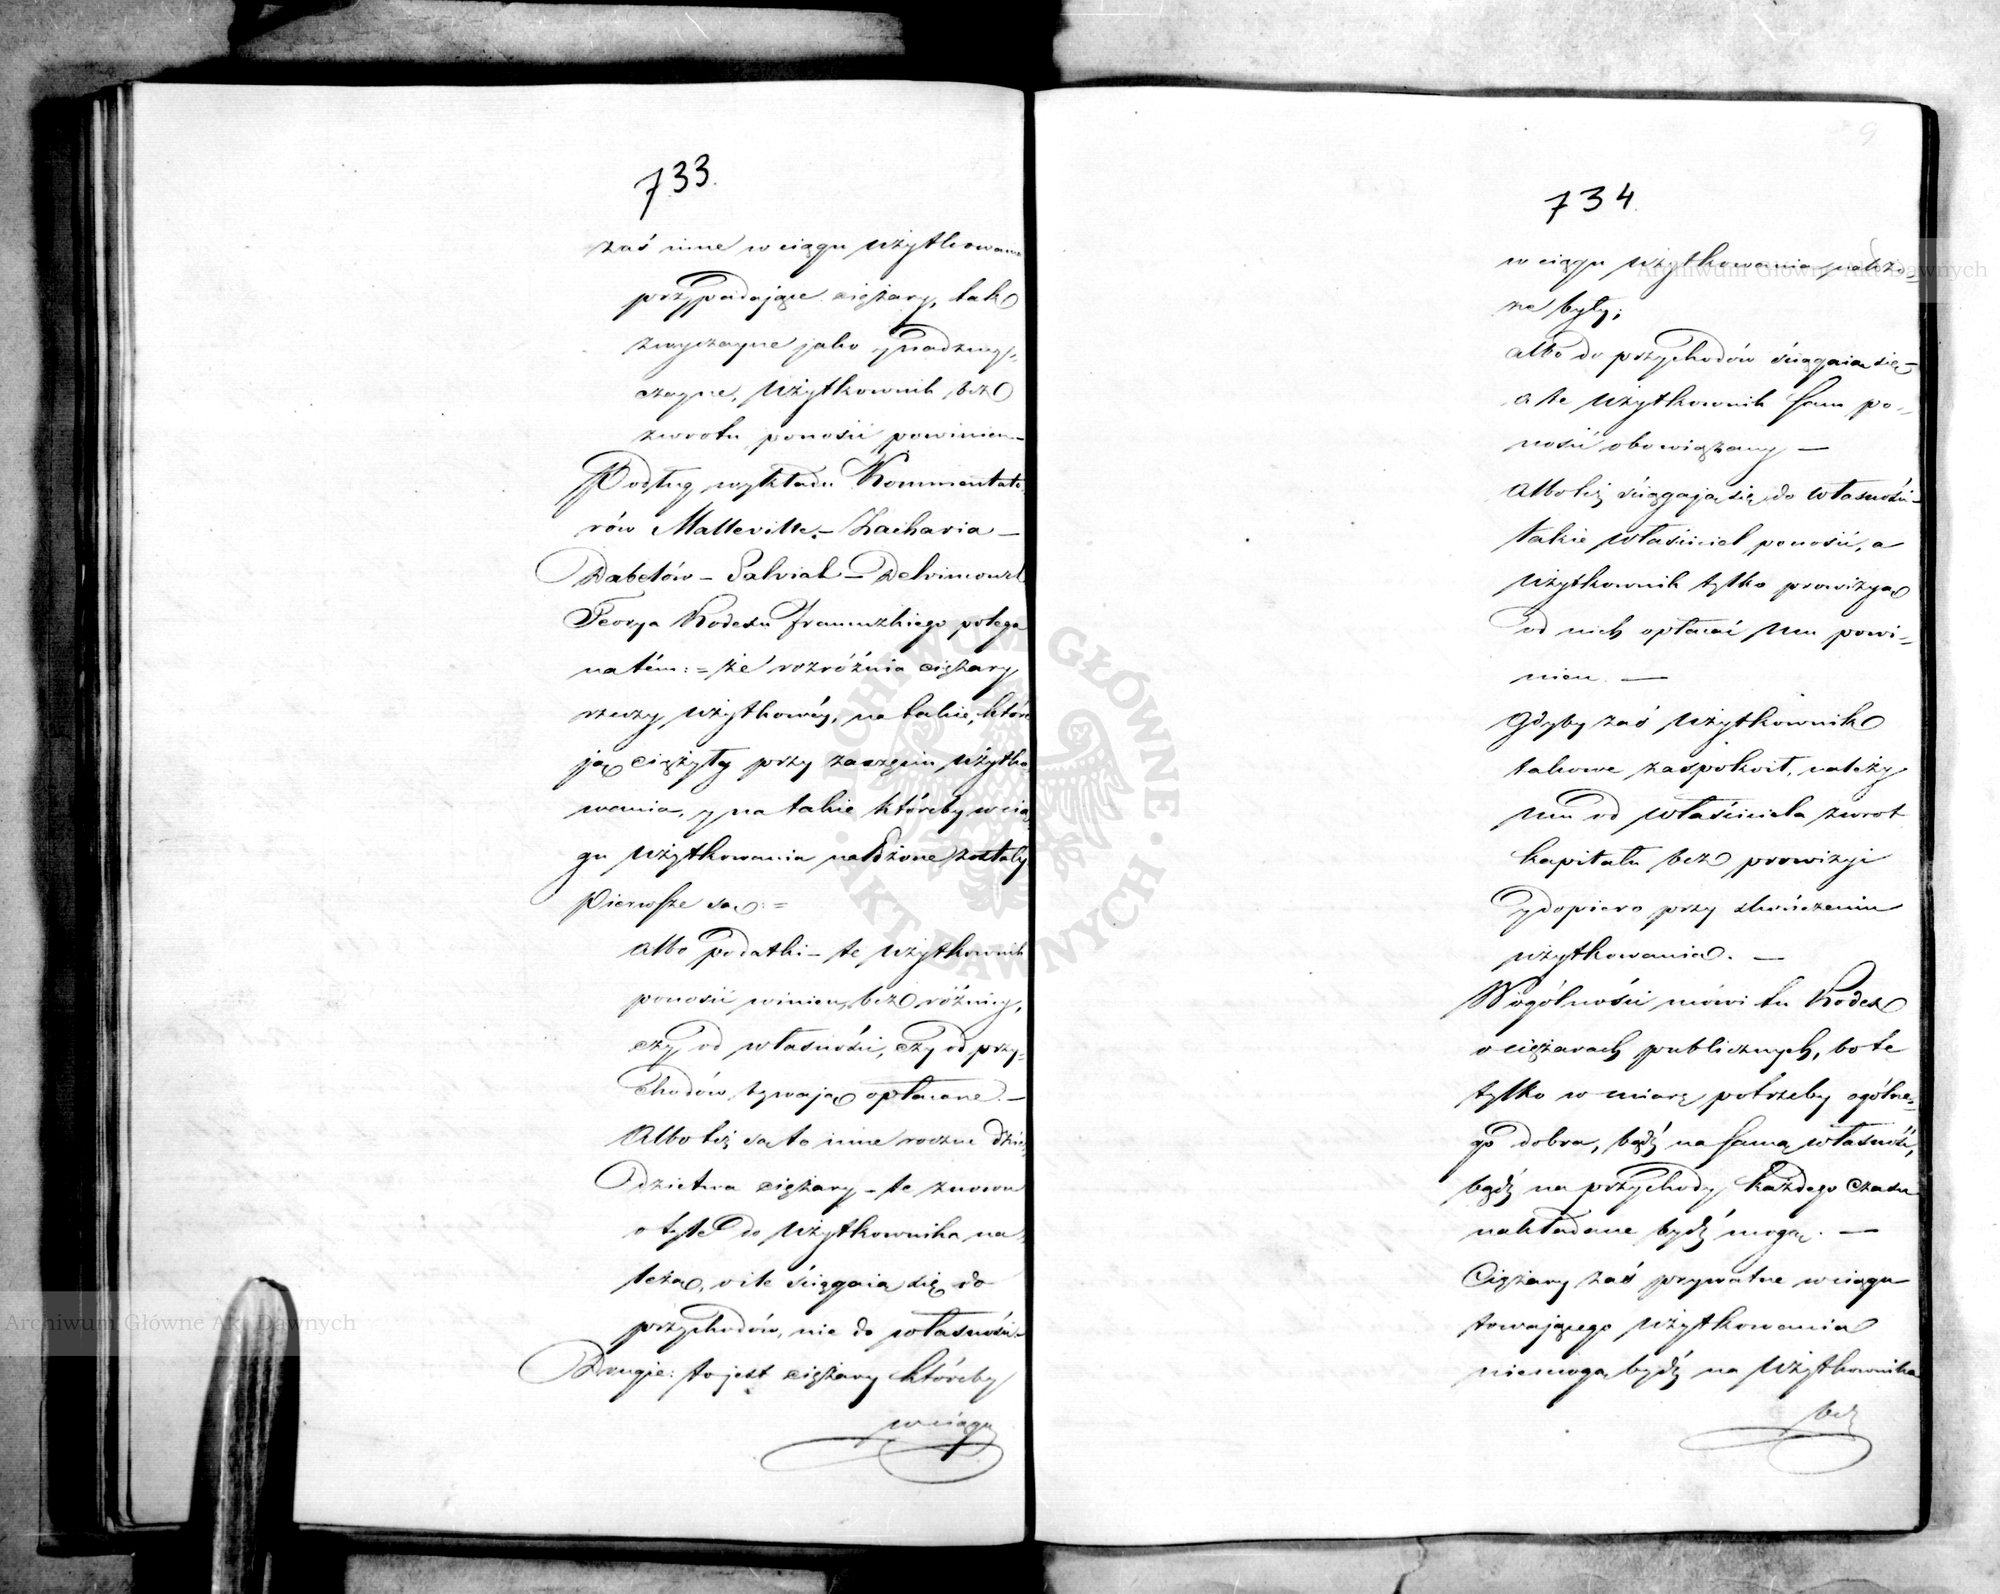 733.
zaś inne w ciągu użytkowania
przypadające ciężary, tak
zwyczayne jako y nadzwy-
czayne, Użytkownik bez
zwrotu ponosić powinien -
Podług wykładu Kommentato-
rów Malleville - Zacharia -
Dabelów - Salviat - Delvincourt
Teorya Kodexu francuzkiego polega
na tém: = że rozróżnia ciężary
rzeczy użytkowéy, na takie, które
ją ciężyły przy zaczęciu użytko
wania, y na takie któreby w cią
gu użytkowania nałożone zostały
Pierwsze są: =
albo podatki - te użytkownik
ponosić winien, bez różnicy,
czy od własności, czy od przy-
chodów bywają opłacane. -
Albo też są to inne roczne dzie-
dzictwa ciężary - te znowu
o tyle do użytkownika na-
leżą, o ile ściągaią się do
przychodów, nie do własności. -
Drugie: to jest ciężary któreby
w ciągu
734.
w ciągu użytkowania nałożo-
ne były;
albo do przychodów ściągaią się -
a te użytkownik sam po-
nosić obowiązany -
Albo też ściągają się do własności -
takie właściciel ponosić, a
użytkownik tylko prowizyą
od nich opłacać mu powi-
nien. -
Gdyby zaś Użytkownik
takowe zaspokoił, należy
mu od właściciela zwrot
kapitału bez prowizyi
y dopiero przy skończeniu
użytkowania. -
W ogólności mówi tu Kodex
o ciężarach publicznych, bo te
tylko w miarę potrzeby ogólne-
go dobra, bądź na samą własność,
bądź na przychody, każdego czasu
nakładane bydź mogą. -
Ciężary zaś prywatne w ciągu
trwającego użytkowania
niemogą bydź na Użytkownika
bez
Archiwum Główne Akt Dawnych
Archiwum Główne Akt Dawnych
ARCHIWUM GŁÓWNE · AKT DAWNYCH ·